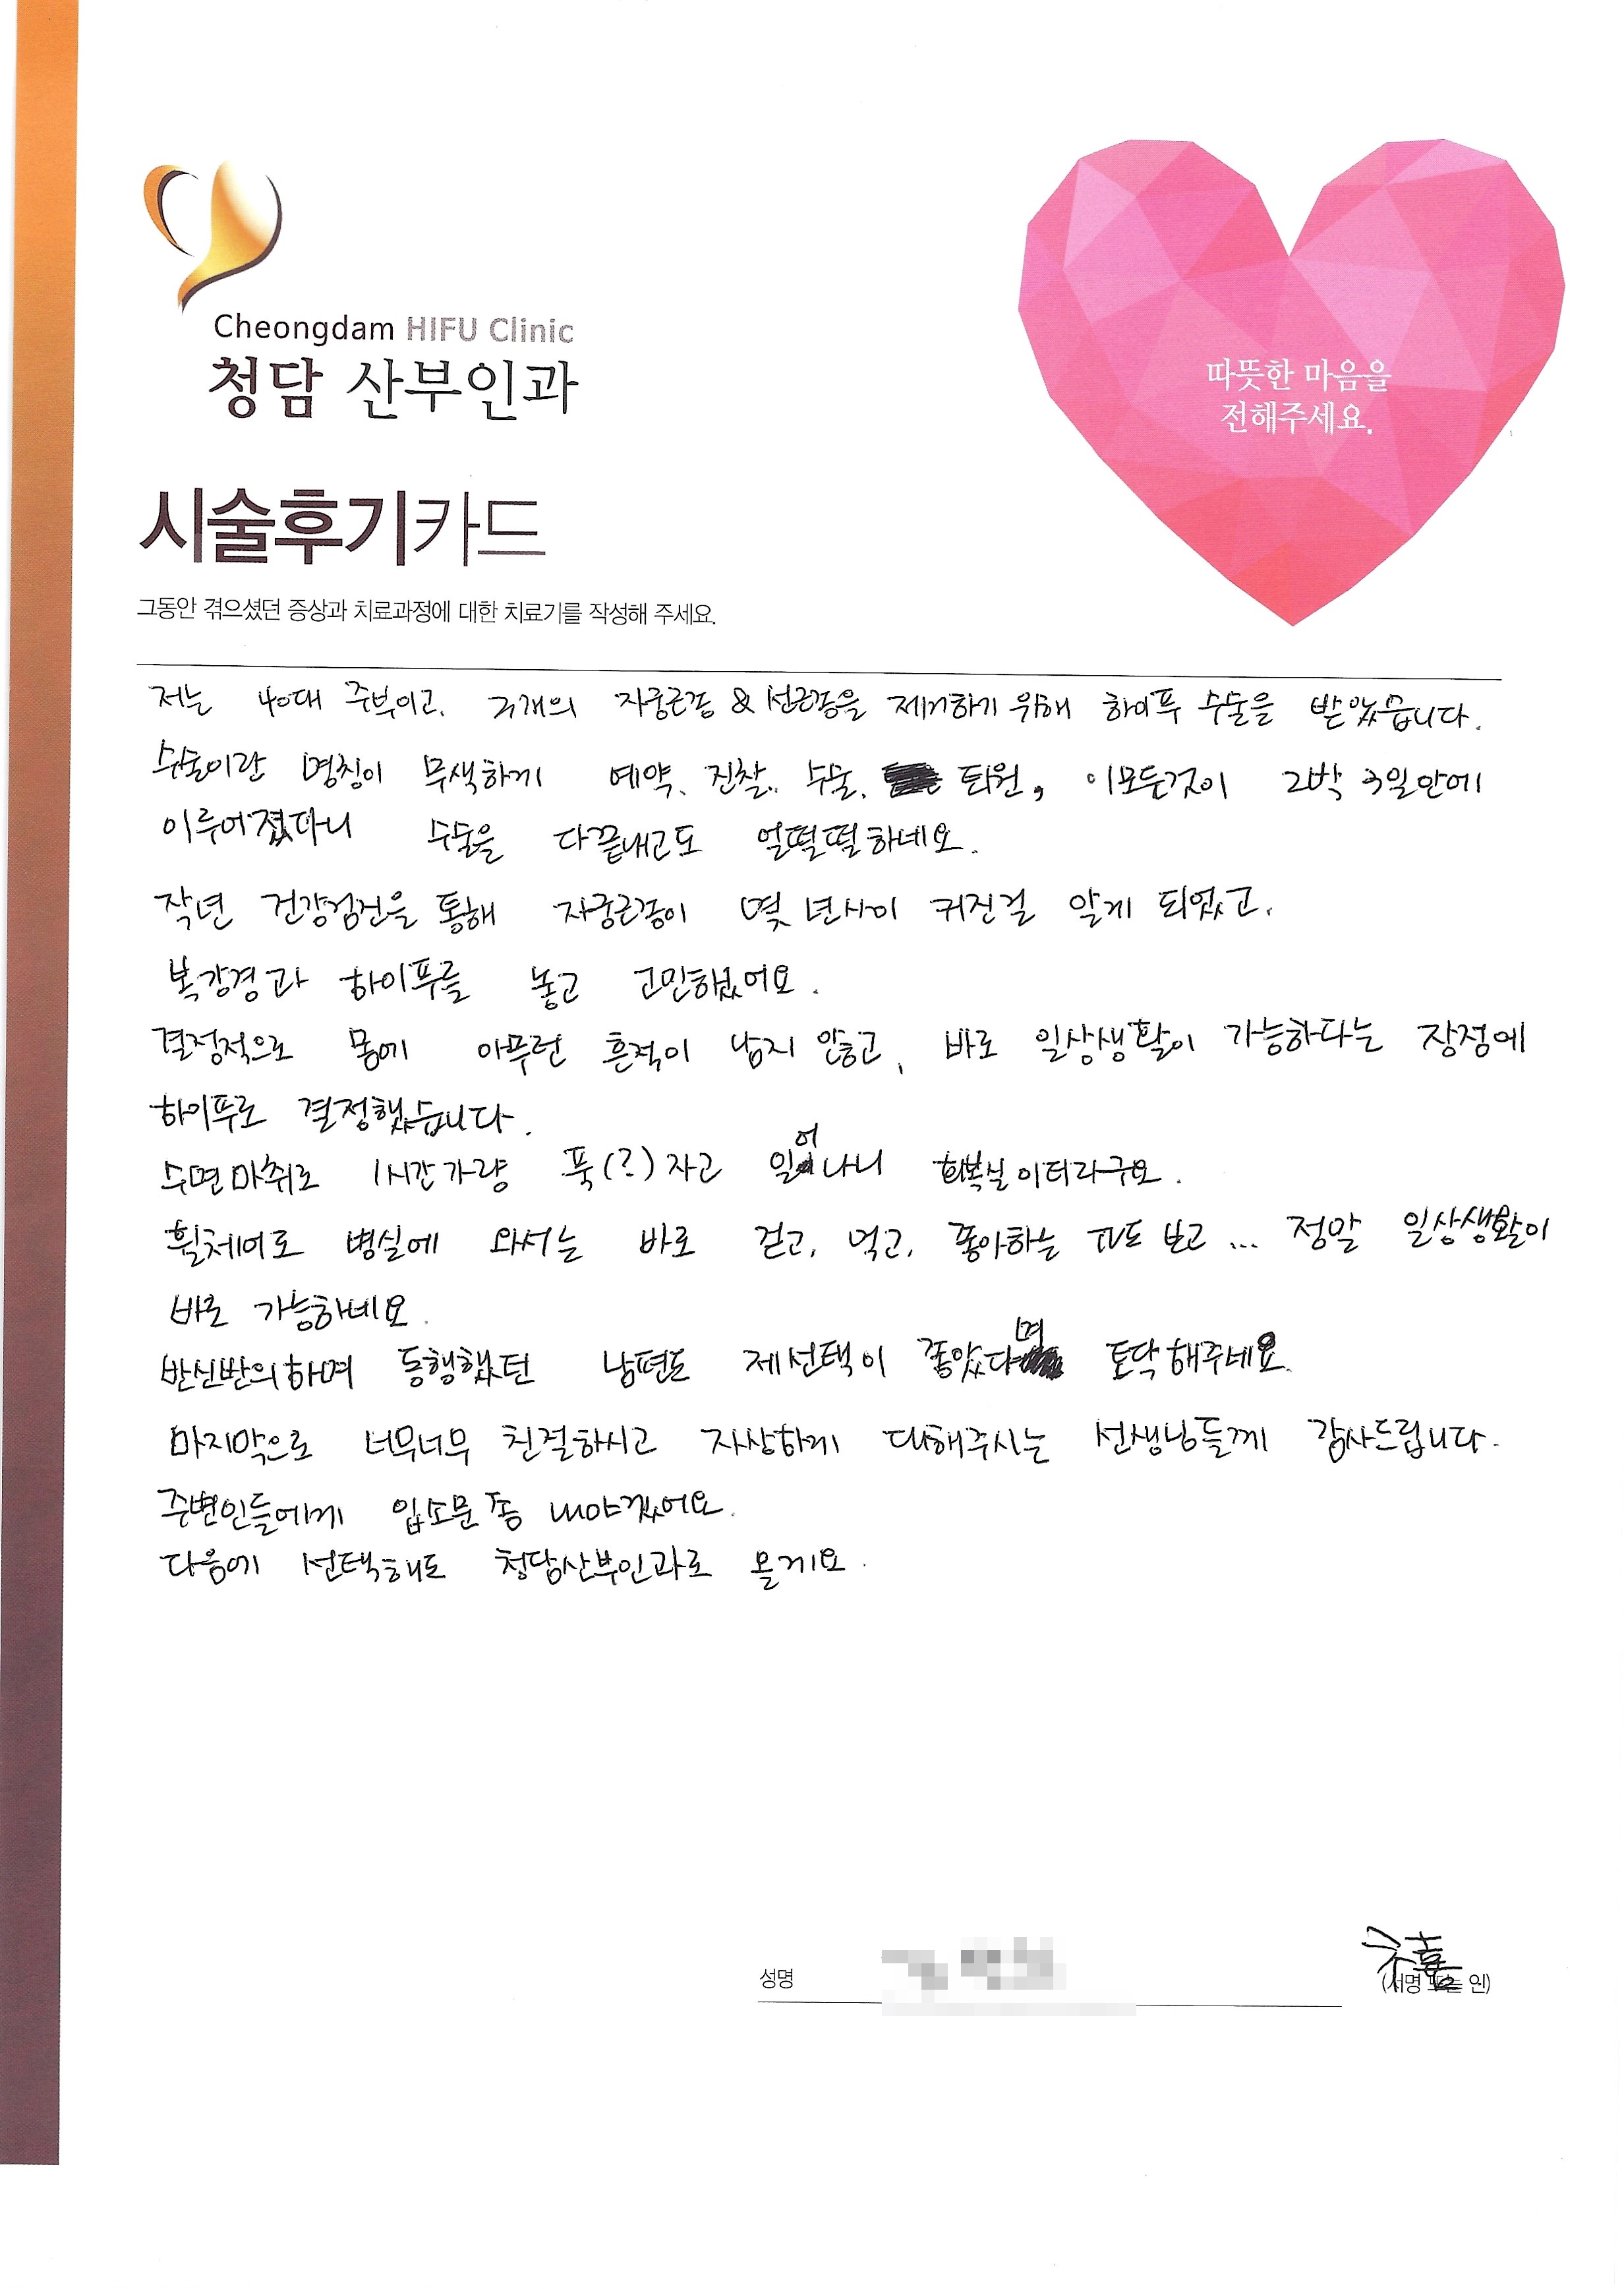 Cheongdam HIFU Clinic
청담 산부인과
따뜻한 마음을
전해주세요.
시술후기카드
그동안 겪으셨던 증상과 치료과정에 대한 치료기를 작성해 주세요.
저는 40대 주부이고, 개의 자궁근종 & 선근종을 제거하기 위해 하이푸 수술을 받았습니다.
수술이란 명칭이 무색하게 예약, 진찰, 수술, 퇴원, 이모든것이 2박 3일안에
이루어졌다니 수술을 다끝내고도 얼떨떨하네요.
작년 건강검진을 통해 자궁근종이 몇 년사이 커진걸 알게 되었고,
복강경과 하이푸를 놓고 고민했었어요.
결정적으로 몸에 아무런 흔적이 남지 않고, 바로 일상생활이 가능하다는 장점에
하이푸로 결정했습니다.
수면마취로 1시간가량 푹(?)자고 일어나니 회복실이더라구요.
휠체어로 병실에 와서는 바로 걷고, 먹고, 좋아하는 TV도 보고... 정말 일상생활이
바로 가능하네요.
반신반의하며 동행했던 남편도 제선택이 좋았다며 토닥해주네요.
마지막으로 너무너무 친절하시고 자상하게 대해주시는 선생님들께 감사드립니다.
주변인들에게 입소문 좀 내야겠어요.
다음에 선택해도 청담산부인과로 올게요.
성명
(서명 또는 인)